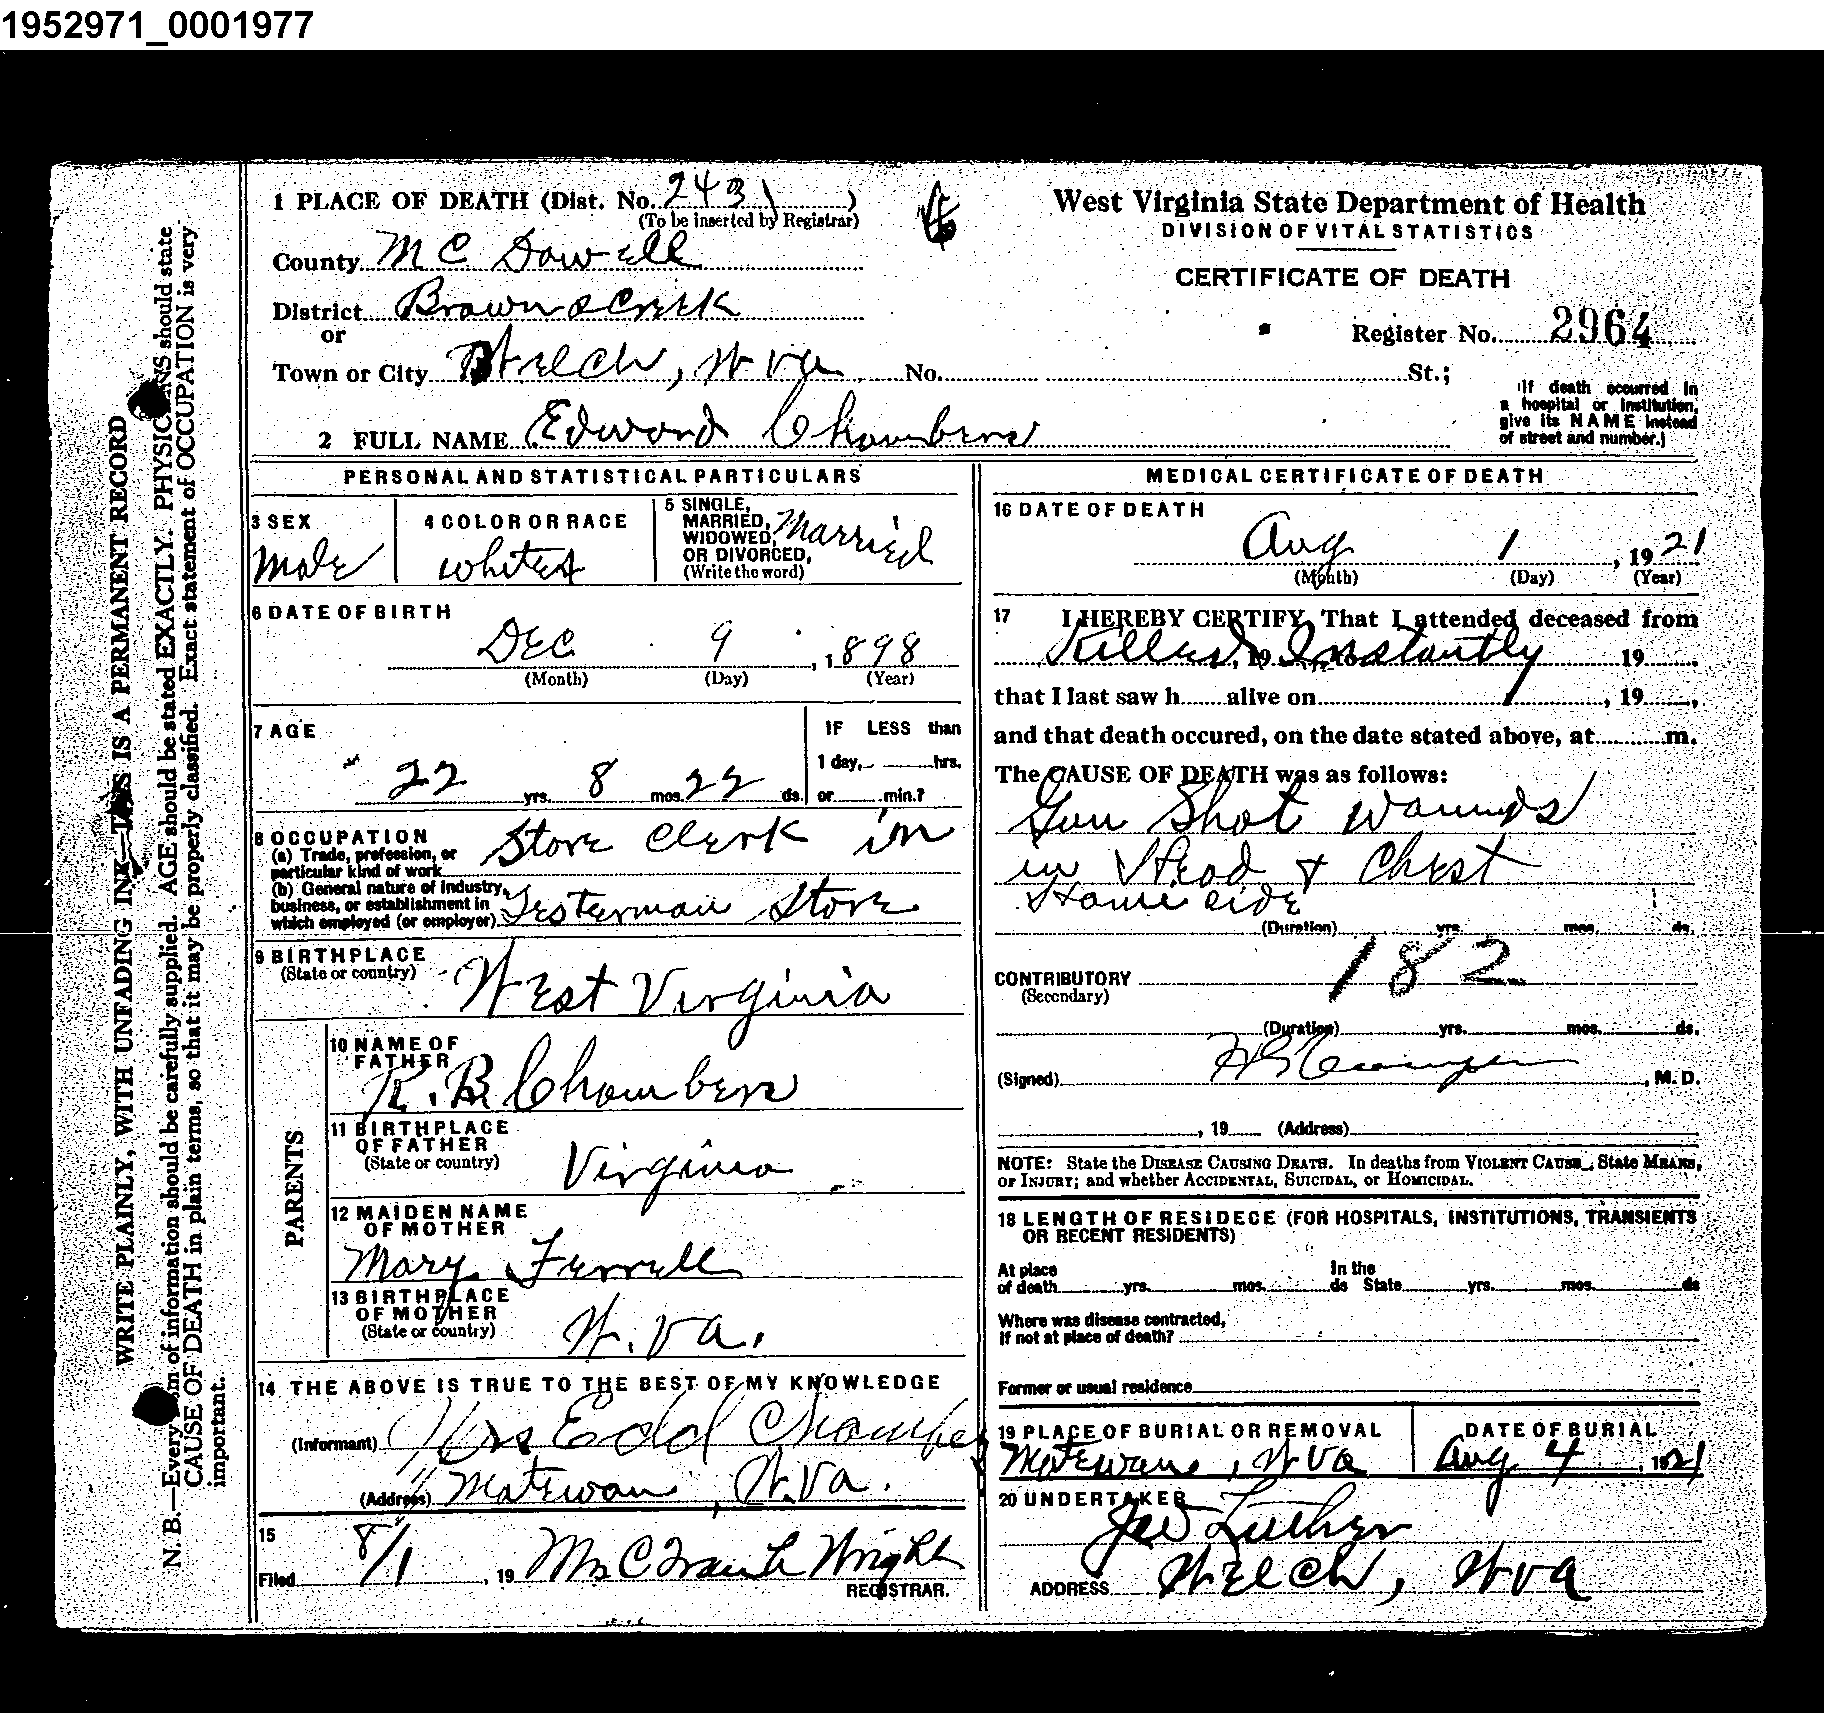 1952971_0001977
1 PLACE OF DEATH (Dist. No. 2431 )
(To be inserted by Registrar)
County Mc Dowell
District Browns Creek
or
Town or City Welch, W Va No. St.;
2 FULL NAME Edward Chambers
West Virginia State Department of Health
DIVISION OF VITAL STATISTICS
CERTIFICATE OF DEATH
Register No. 2964
(If death occurred in
a hospital or institution,
give its NAME instead
of street and number.)
PERSONAL AND STATISTICAL PARTICULARS
3 SEX
Male
4 COLOR OR RACE
white
5 SINGLE,
MARRIED,
WIDOWED,
OR DIVORCED,
(Write the word)
Married
6 DATE OF BIRTH
Dec 9, 1898
(Month) (Day) (Year)
7 AGE
22 yrs. 8 mos. 22 ds.
IF LESS than
1 day, hrs.
or min.?
8 OCCUPATION
(a) Trade, profession, or
particular kind of work
Store Clerk in
(b) General nature of industry,
business, or establishment in
which employed (or employer)
Testerman Store
9 BIRTHPLACE
(State or country)
West Virginia
PARENTS
10 NAME OF
FATHER
R. B. Chambers
11 BIRTHPLACE
OF FATHER
(State or country)
Virginia
12 MAIDEN NAME
OF MOTHER
Mary Ferrell
13 BIRTHPLACE
OF MOTHER
(State or country)
W. Va.
14 THE ABOVE IS TRUE TO THE BEST OF MY KNOWLEDGE
(Informant) Mrs Edd Chambers
(Address) Matewan, W. Va.
15
Filed 8/1, 19 Mrs C Frank Wright
REGISTRAR.
MEDICAL CERTIFICATE OF DEATH
16 DATE OF DEATH
Aug 1, 1921
(Month) (Day) (Year)
17 I HEREBY CERTIFY, That I attended deceased from
Killed, 19 Instantly 19
that I last saw h alive on , 19 ,
and that death occured, on the date stated above, at m.
The CAUSE OF DEATH was as follows:
Gun Shot Wounds
in Head & Chest
Homecide
(Duration) yrs. mos. ds.
182
CONTRIBUTORY
(Secondary)
(Duration) yrs. mos. ds.
(Signed) , M. D.
, 19 (Address)
NOTE: State the DISEASE CAUSING DEATH. In deaths from VIOLENT CAUSE, State MEANS,
OF INJURY; and whether ACCIDENTAL, SUICIDAL, or HOMICIDAL.
18 LENGTH OF RESIDECE (FOR HOSPITALS, INSTITUTIONS, TRANSIENTS
OR RECENT RESIDENTS)
At place
of death yrs. mos. ds
In the
State yrs. mos. ds
Where was disease contracted,
If not at place of death?
Former or usual residence
19 PLACE OF BURIAL OR REMOVAL
Matewan, W Va
DATE OF BURIAL
Aug 4, 1921
20 UNDERTAKER
Jas Luther
ADDRESS Welch, W Va
WRITE PLAINLY, WITH UNFADING INK—THIS IS A PERMANENT RECORD
N. B.—Every item of information should be carefully supplied. AGE should be stated EXACTLY. PHYSICIANS should state
CAUSE OF DEATH in plain terms, so that it may be properly classified. Exact statement of OCCUPATION is very
important.